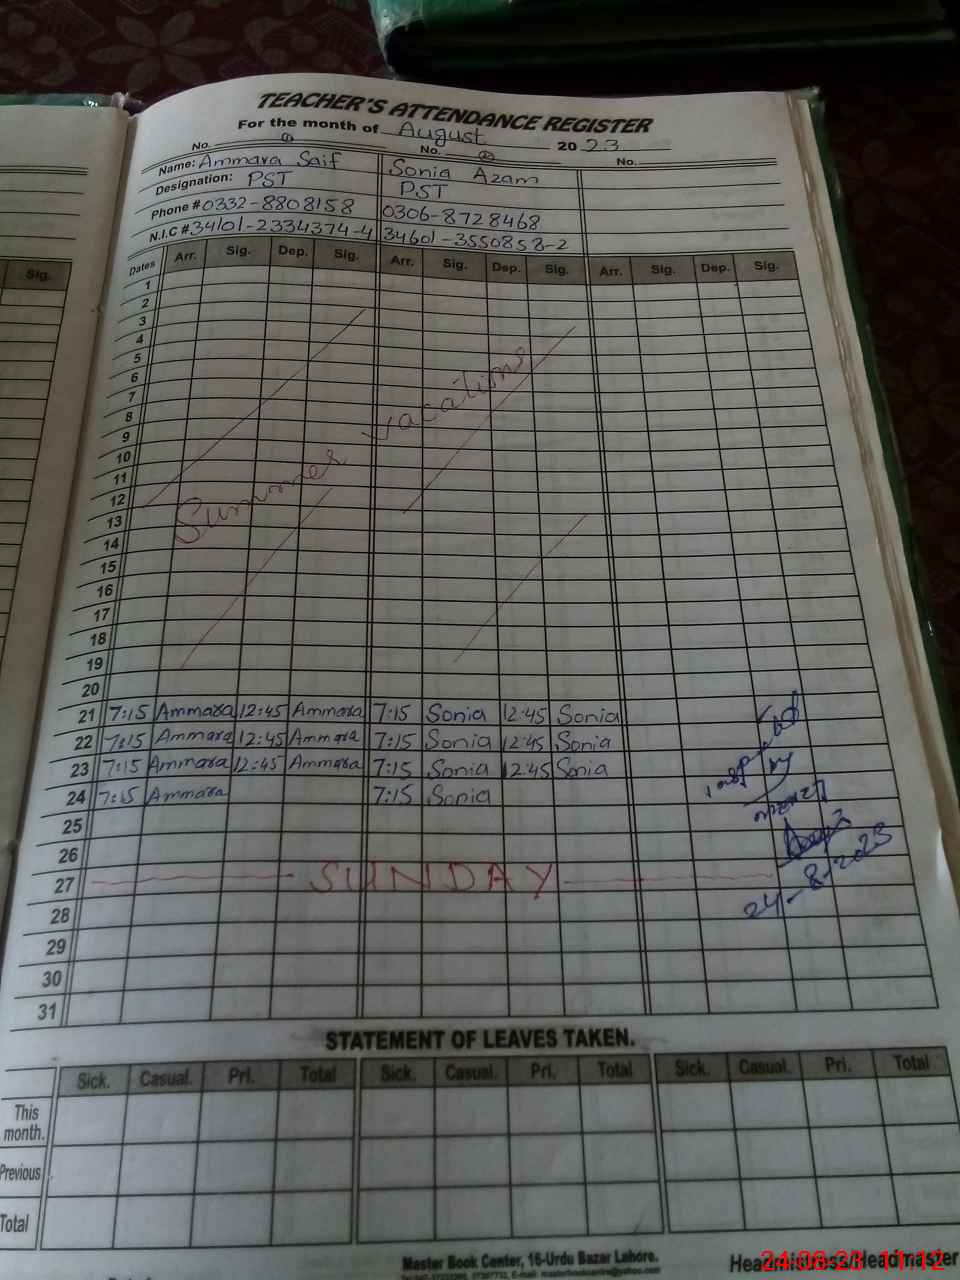 TEACHER'S ATTENDANCE REGISTER
For the month of August 2023
No. 1 No. 2 No.
Name: Ammara Saif Sonia Azam
Designation: PST PST
Phone # 0332-8808158 0306-8728468
N.I.C # 34101-2334374-4 34601-3550858-2
Sig.
Dates Arr. Sig. Dep. Sig. Arr. Sig. Dep. Sig. Arr. Sig. Dep. Sig.
1
2
3
4
5
6
7
8
9
10
11
12
Summer vacations
13
14
15
16
17
18
19
20
21 7:15 Ammara 12:45 Ammara 7:15 Sonia 12:45 Sonia
22 7:15 Ammara 12:45 Ammara 7:15 Sonia 12:45 Sonia
23 7:15 Ammara 12:45 Ammara 7:15 Sonia 12:45 Sonia
24 7:15 Ammara 7:15 Sonia
25
26
27 SUNDAY
28
29
30
31
24-8-2023
STATEMENT OF LEAVES TAKEN.
Sick. Casual. Pri. Total Sick. Casual. Pri. Total Sick. Casual. Pri. Total
This month.
Previous
Total
Master Book Center, 16-Urdu Bazar Lahore.
Headmistress/Headmaster
24:08:23 11:12